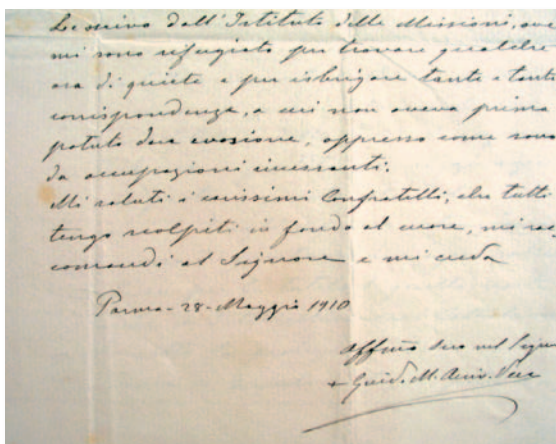 Le scrivo dall'Istituto delle Missioni, ove
mi sono rifugiato per trovare qualche
ora di quiete e per isbrigare tante e tante
corrispondenze, a cui non aveva prima
potuto dare evasione, oppresso come sono
da occupazioni incessanti.
Mi saluti i carissimi Confratelli, che tutti
tengo scolpiti in fondo al cuore, mi rac
comandi al Signore e mi creda
Parma - 28 - Maggio 1910
Affmo suo nel Signo
+ Guido M. Arciv. Vesc